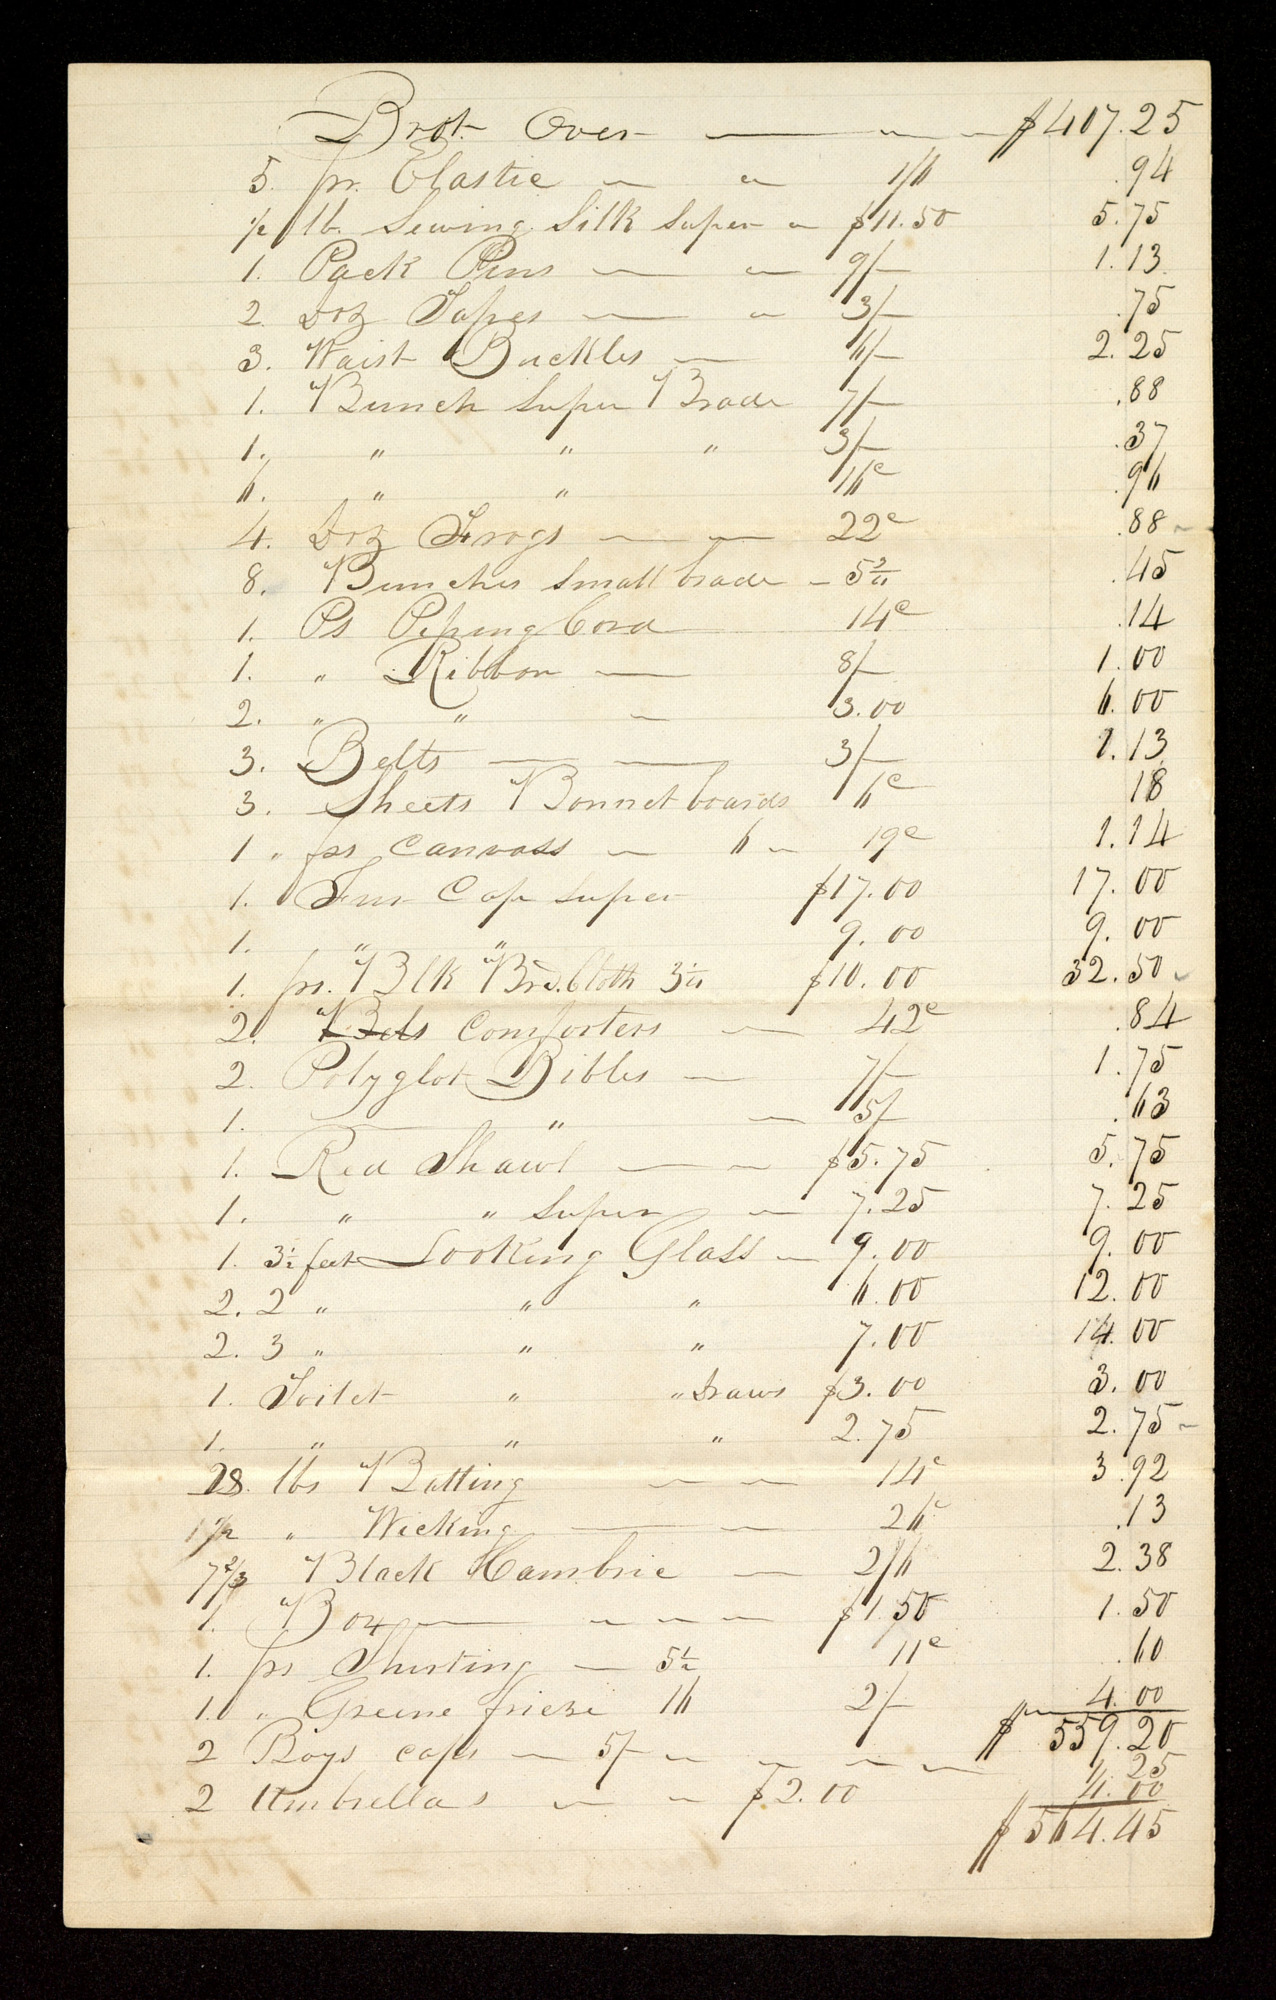 Brot. Over — " — $407.25
5. pr. Elastic — " 1/6 .94
1/2 lb. Sewing Silk Super " $11.50 5.75
1. Pack Pins — " 9/- 1.13
2. Doz Tapes — " 3/- .75
3. Waist Buckles — 6/- 2.25
1. Bunch Super Brade 7/- .88
1. " " " 3/- .37
6. " " 16c .96
4. Doz Frogs — — 22c .88
8. Bunches Small brade - 5 .45
1. Ps Piping Cord 14c .14
1. " Ribbon — 8/- 1.00
2. " " — 3.00 6.00
3. Belts — — 3/- 1.13
3. Sheets Bonnet boards 6c 18
1 " ps Canvass — 6 " 19c 1.14
1. Fur Cap Super $17.00 17.00
1. " " 9.00 9.00
1. pr. Blk Brd. Cloth 3 1/4 $10.00 32.50
2. Bels Comforters — 42c .84
2. Polyglot Bibles — 7/- 1.75
1. — " — 5/- .63
1. Red Shawl — — $5.75 5.75
1. " " Super — 7.25 7.25
1. 3 1/2 feet Looking Glass — 9.00 9.00
2. 2 " " " 6.00 12.00
2. 3 " " " 7.00 14.00
1. Toilet " " Draws $3.00 3.00
1. " " " 2.75 2.75
28. lbs Batting — — 14c 3.92
1/2 " Wicking — — 26c .13
7 2/3 Black Cambric — 2/6 2.38
1. Box — — — — $1.50 1.50
1. ps Shirting — 5 1/2 11c .60
1. " Greene frieze 16 2/- 4.00
$ 559.20
2 Boys caps — 5/- — — — — 1.25
2 Umbrellas — — $2.00 4.00
$564.45